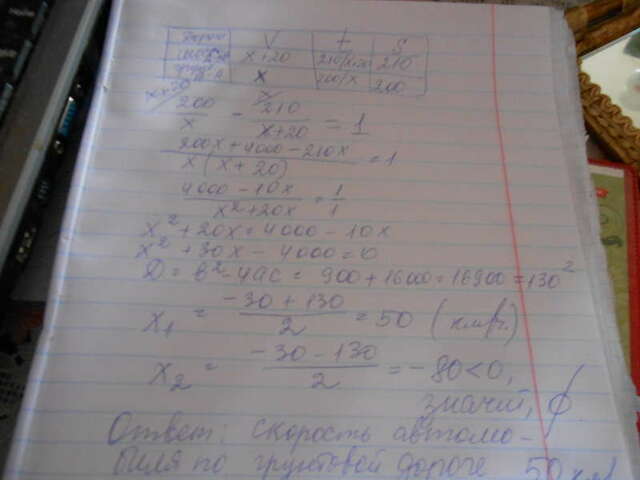 V t S
x+20 210/x+20 210
x 200/x 200
x+20/ 200/x - x/ 210/x+20 = 1
200x + 4000 - 210x / x(x+20) = 1
4000 - 10x / x²+20x = 1/1
x² + 20x = 4000 - 10x
x² + 30x - 4000 = 0
D = b² - 4ac = 900 + 16000 = 16900 = 130²
x₁ = -30 + 130 / 2 = 50 (км/ч.)
x₂ = -30 - 130 / 2 = -80 < 0,
значит, ∅
Ответ: скорость автомо-
биля по грунтовой дороге 50